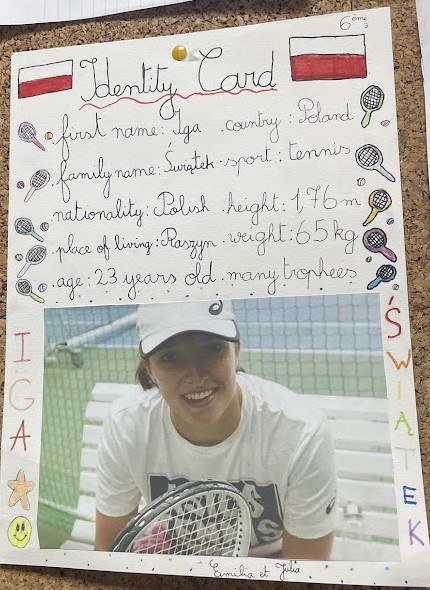 6ème 3
Identity Card
first name: Iga . country : Poland
family name: Świątek . sport : tennis
nationality: Polish . height: 1,76 m
place of living: Raszyn . weight: 65 kg
age: 23 years old . many trophees
IGA
ŚWIĄTEK
Emilia et Julia